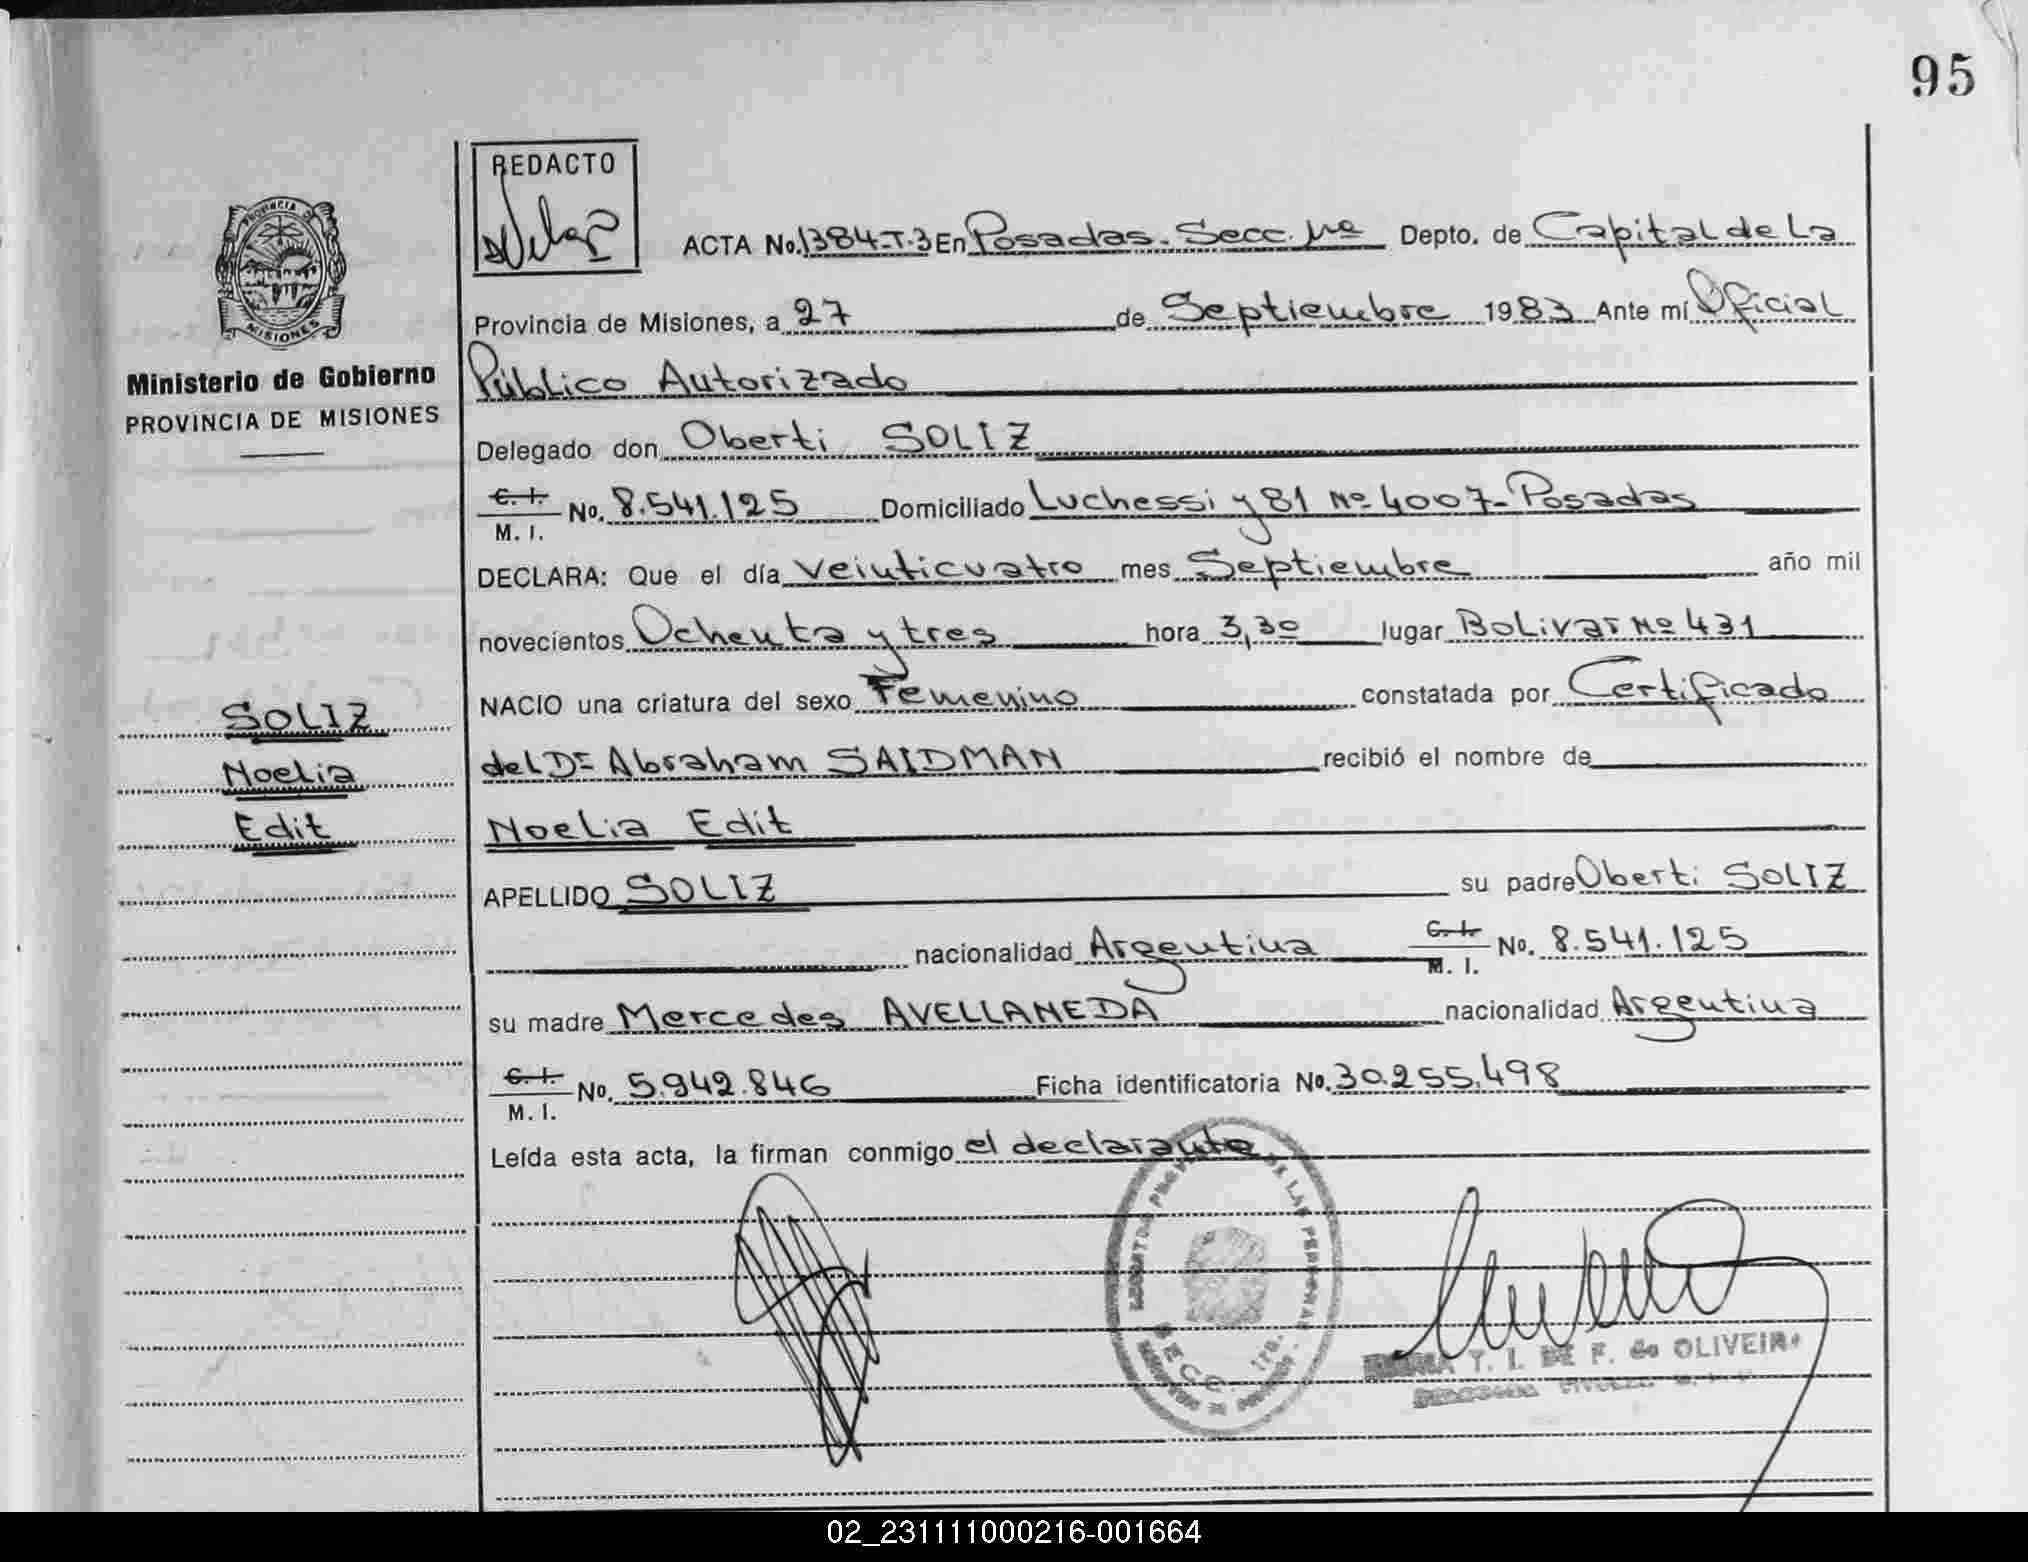 95
REDACTO
PROVINCIA DE
MISIONES
Ministerio de Gobierno
PROVINCIA DE MISIONES
ACTA No. 1384-T.3 En Posadas. Secc. 1ra Depto. de Capital de La
Provincia de Misiones, a 27 de Septiembre 1983 Ante mí Oficial
Público Autorizado
Delegado don Oberti SOLIZ
C. I. M. I. No. 8.541.125 Domiciliado Luchessi y 81 Nº 4007-Posadas
DECLARA: Que el día veinticuatro mes Septiembre año mil
novecientos Ochenta y tres hora 3,30 lugar Bolivar Nº 431
NACIO una criatura del sexo Femenino constatada por Certificado
del Dr Abraham SAIDMAN recibió el nombre de
Noelia Edit
APELLIDO SOLIZ su padre Oberti SOLIZ
nacionalidad Argentina C. I. M. I. No. 8.541.125
su madre Mercedes AVELLANEDA nacionalidad Argentina
C. I. M. I. No. 5.942.846 Ficha identificatoria No. 30.255.498
Leída esta acta, la firman conmigo el declarante
SOLIZ
Noelia
Edit
DE LAS PERSONAS
SECC. 1ra.
T. I. DE F. de OLIVEIRA
02_231111000216-001664